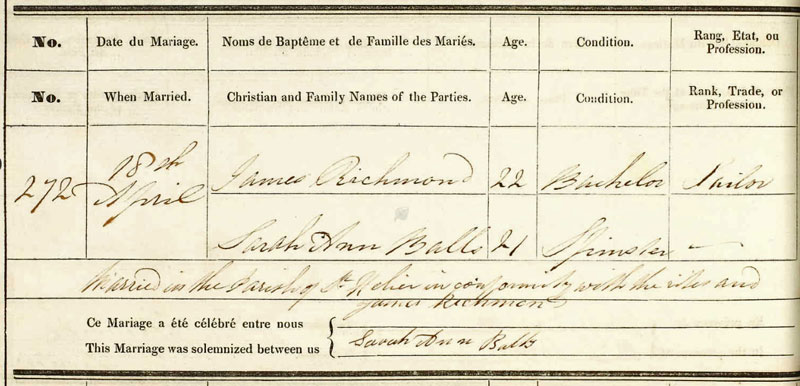 No. Date du Mariage. Noms de Baptême et de Famille des Mariés. Age. Condition. Rang, Etat, ou Profession.
No. When Married. Christian and Family Names of the Parties. Age. Condition. Rank, Trade, or Profession.
272 18th April James Richmond 22 Bachelor Tailor
Sarah Ann Balls 21 Spinster —
Married in the Parish of St Helier in conformity with the rites and
James Richmond
Ce Mariage a été célébré entre nous
This Marriage was solemnized between us Sarah Ann Balls